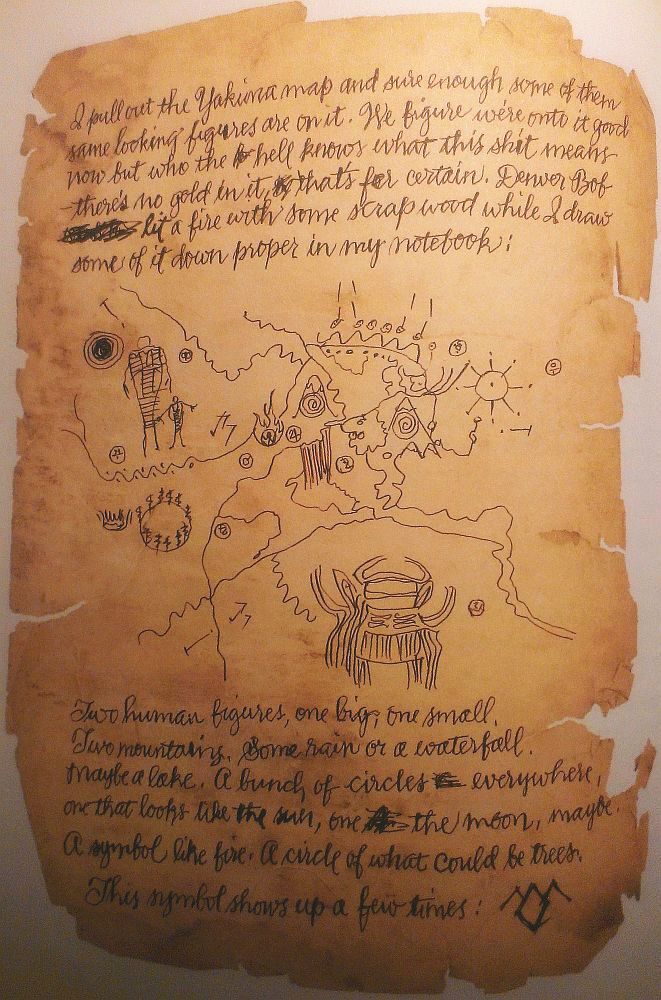 I pull out the Yakima map and sure enough some of them
same looking figures are on it. We figure we're onto it good
now but who the hell knows what this shit means
there's no gold in it, that's for certain. Denver Bob
lit a fire with some scrap wood while I draw
some of it down proper in my notebook:
Two human figures, one big, one small.
Two mountains. Some rain or a waterfall.
Maybe a lake. A bunch of circles everywhere,
one that looks like the sun, one the moon, maybe.
A symbol like fire. A circle of what could be trees.
This symbol shows up a few times: